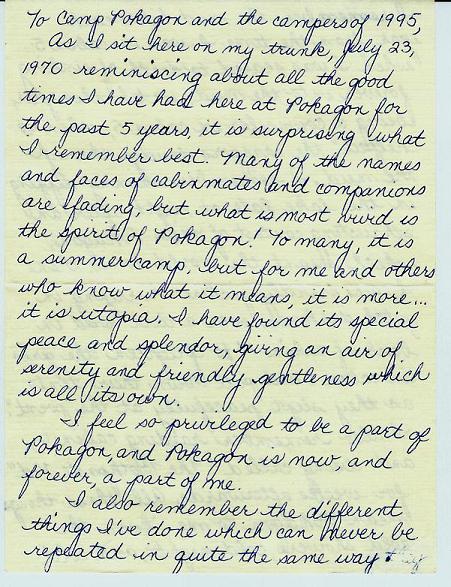 To Camp Pokagon and the campers of 1995,
As I sit here on my trunk, July 23,
1970 reminiscing about all the good
times I have had here at Pokagon for
the past 5 years, it is surprising what
I remember best. Many of the names
and faces of cabinmates and companions
are fading, but what is most vivid is
the spirit of Pokagon! To many, it is
a summer camp, but for me and others
who know what it means, it is more...
it is utopia. I have found its special
peace and splendor, giving an air of
serenity and friendly gentleness which
is all its own.
I feel so privileged to be a part of
Pokagon, and Pokagon is now, and
forever, a part of me.
I also remember the different
things I've done which can never be
repeated in quite the same way